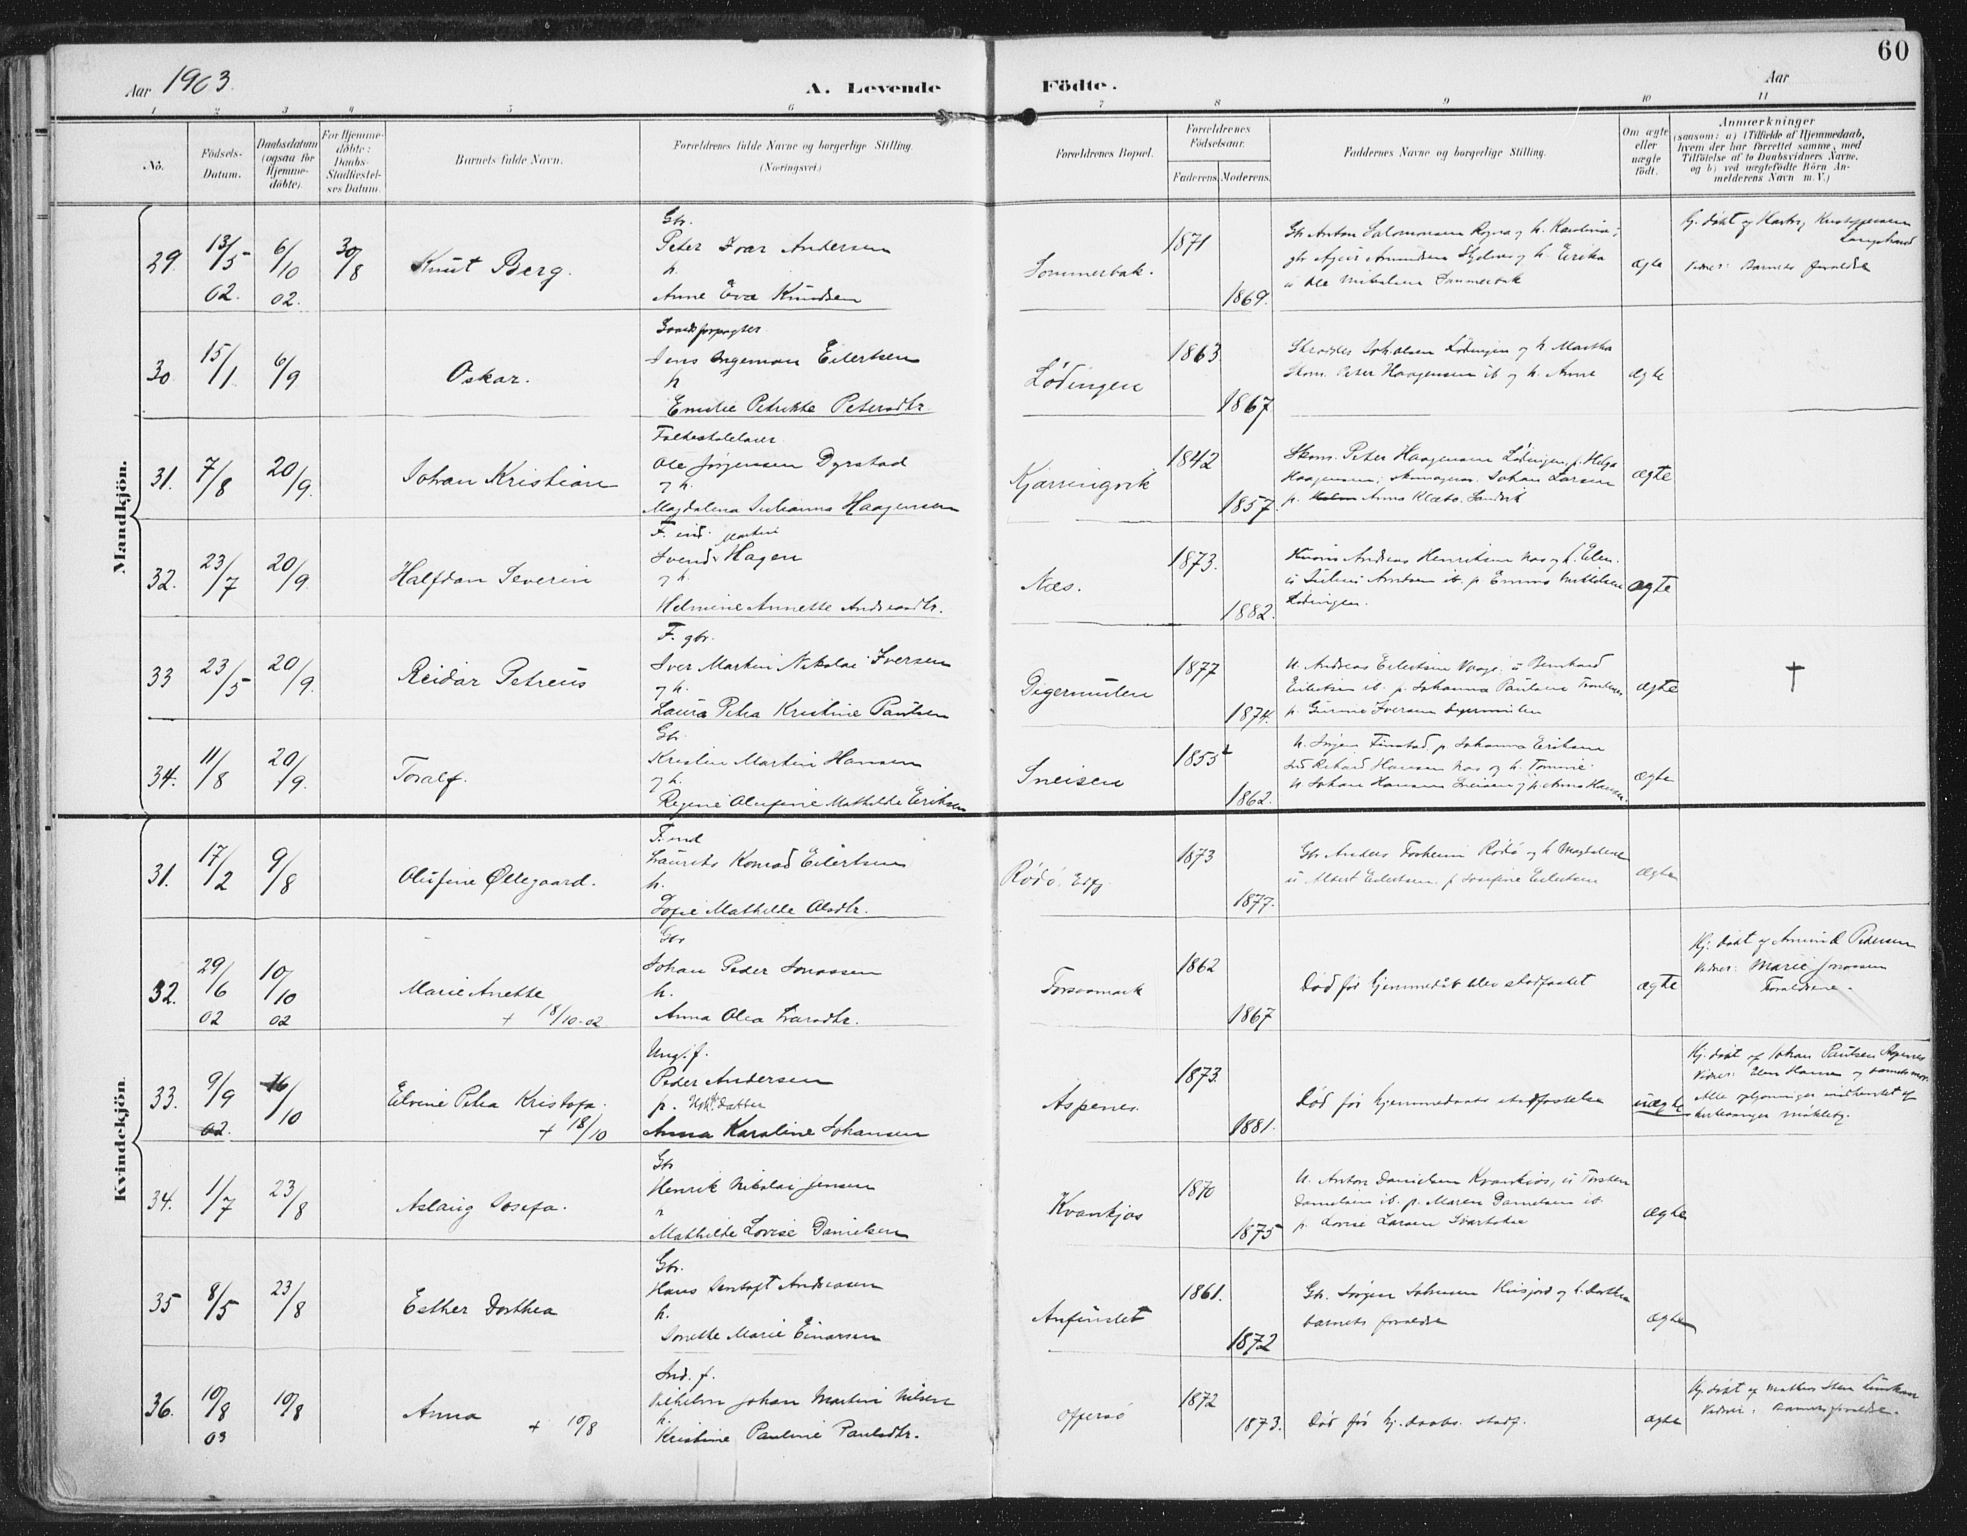 60
Aar 1903.
A. Levende Födte.
Aar
1 2 3 4 5 6 7 8 9 10 11
No.
Födsels-Datum.
Daabsdatum (ogsaa for Hjemmedöbte).
For Hjemmedöbte: Daabs-Stadfæstelses Datum.
Barnets fulde Navn.
Forældrenes fulde Navne og borgerlige Stilling.
(Næringsvei.)
Forældrenes Bopæl.
Forældrenes Födselsaar.
Faderens. Moderens.
Faddernes Navne og borgerlige Stilling.
Om ægte eller uægte födt.
Anmærkninger
(saasom: a) i Tilfælde af Hjemmedaab, hvem der har forrettet samme, med Tilföielse af to Daabsvidners Navne, og b) ved uægtefödte Börn Anmelderens Navn m. V.)
Mandkjön.
29. 13/5 02. 6/10 02. 30/8 Knut Berg.
Gbr.
Peter Ivar Andersen
h.
Anne Eva Knudsen
Sommerbak. 1871 1869.
Gbr Anton Salomonsen
h. Karolina;
h. Erika
ægte
Hj. døbt af
Vidner: Barnets forældre
30. 15/1 6/9 Oskar.
Jens Ingeman Eilertsen
h
Emilie Petrikke Petersdtr.
Lødingen 1863. 1867
Lødingen og h. Martha
Skom. Peter Haagensen ib og h. Anne
ægte
31. 7/8 20/9. Johan Kristian
Ole Jørgensen Dyrstad
og h.
Magdalena Julianna Haagensen
Kjærringvik 1842 1857.
Skom. Peter Haagensen Lødingen, p. Helga
Haagensen; Johan Larsen
p. Anna Klæbo, Sandvik
ægte
32. 23/7 20/9 Halfdan Severin
F. ind. Martin
Svend Hagen
og h.
Helmine Annette Andreasdtr.
Næs. 1873. 1882.
Andreas Henriksen Næs og h. Elen.
u Julius Arntsen ib. p Emma
Lødingen.
ægte
33 23/5 20/9. Reidar Petreus
F. gbr.
Iver Martin Nikolai Iversen
og h.
Laura Petra Kristine Paulsen
Digermulen 1877 1874.
U. Andreas Eilertsen Vaage. u Bernhard
Eilertsen ib. p. Johanna Paulsen
p. Gurine Iversen Digermulen
ægte †
34. 11/8 20/9. Toralf.
Gbr.
Kristen Martin Hansen
og h.
Regine Olufine Mathilde Eriksen
Sneisen 1855 1862.
U. Jørgen Finstad p Johanna Eriksen
Rikard Hansen Næs og h. Tomine
U Johan Hansen Sneisen og p. Anna Hansen.
ægte
Kvindekjön.
31. 17/2 9/8 Olufine Øllegaard.
F. ind
Laurits Konrad Eilertsen
h.
Sofie Mathilde Olsdtr.
Rødø, Edfj. 1873 1877.
Gbr Anders Forheim Rødø og h Magdalena
u Albert Eilertsen. p Josefine Eilertsen
ægte
32. 29/6 02 10/10 02 Marie Anette
+ 18/10-02
Gbr
Johan Peder Jonassen
h.
Anna Olea Ivarsdtr.
Forsaamark 1862 1867
Død før hjemmedåb blev stadfæstet
ægte
Hj. døbt af Amund Pedersen
Vidner: Marie Jonassen
Forældrene.
33. 9/9 02. 16/10 Elvine Petra Kristofa.
+ 18/10
Ung. f.
Peder Andersen
p. datter
Anna Karoline Johansen
Aspenes. 1873. 1881.
Død før hjemmedaabs stadfæstelse
uægte
Hj. døbt af Johan Paulsen Aspenes
Vidner: Elen Hansen og barnets mor.
Alle oplysninger indhentet af
34. 1/7 23/8 Aslaug Josefa.
Gbr
Henrik Nikolai Jensen
h
Mathilde Lovise Danielsen
Kvankjos 1870 1875
U. Anton Danielsen Kvankjos, u Torsten
Danielsen ib. p. Maren Danielsen ib.
p. Lovise Larsen
ægte
35 8/5 23/8 Esther Dorthea
Gbr.
Hans Jentoft Andreasen
h.
Jonette Marie Einarsen
Anfindet 1861. 1872
Gbr. Jørgen Johnsen og h. Dorthea
barnets forældre
ægte
36. 10/8 03 10/8 Anna + 10/8
Ind. f.
Vilhelm Johan Martin Nilsen
h.
Kristine Pauline Paulsdtr.
Offersø 1872 1873.
Død før hj. daabs. stadf.
ægte
Hj. døbt af
Vidner: Barnets forældre.